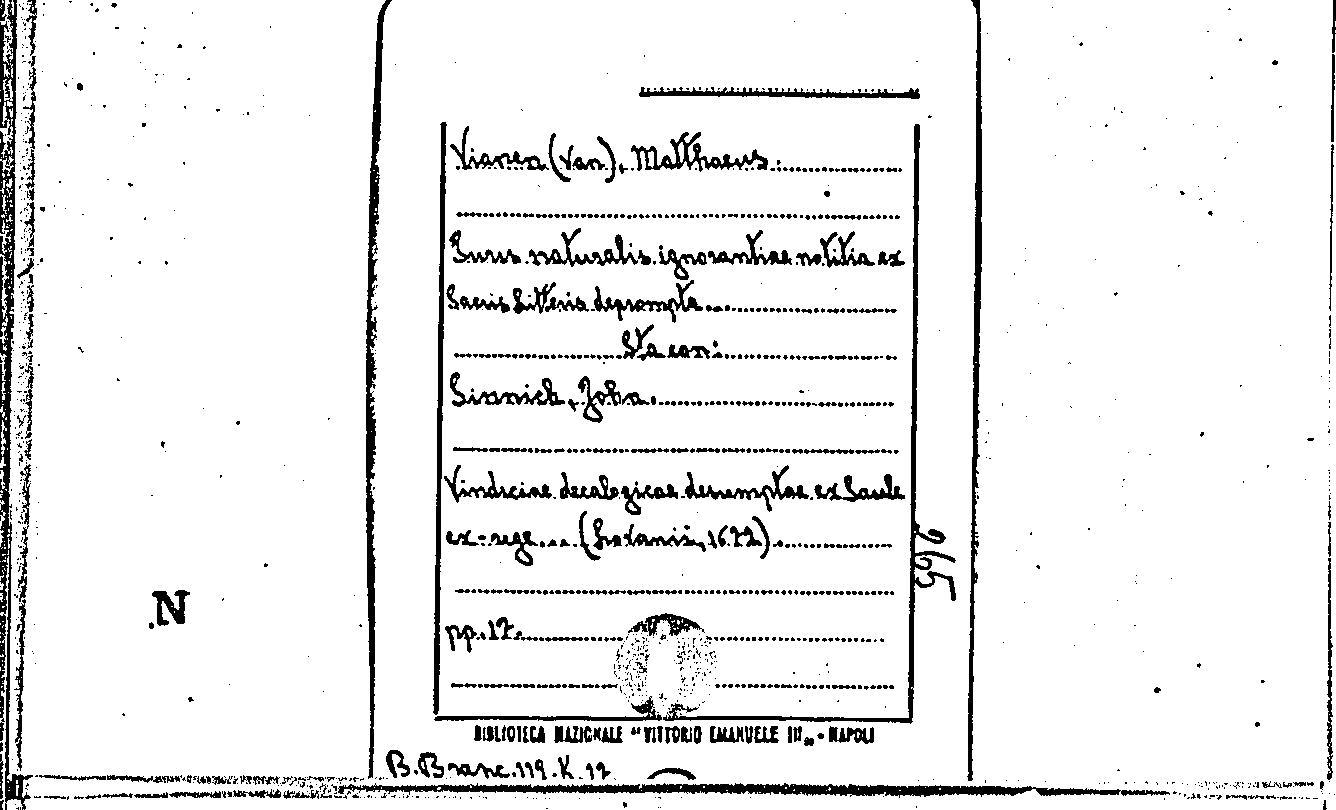 Vianen (Van), Matthaeus.
Iuris naturalis ignorantiae notitia ex
Sacris Litteris deprompta...
Sta con:
Sinnich, John.
Vindiciae decalogicae desumptae ex Saule
ex-rege... (Lovanii, 1672).
265
N
pp. 12.
BIBLIOTECA NAZIONALE "VITTORIO EMANUELE III„ - NAPOLI
B. Branc. 119. K. 12